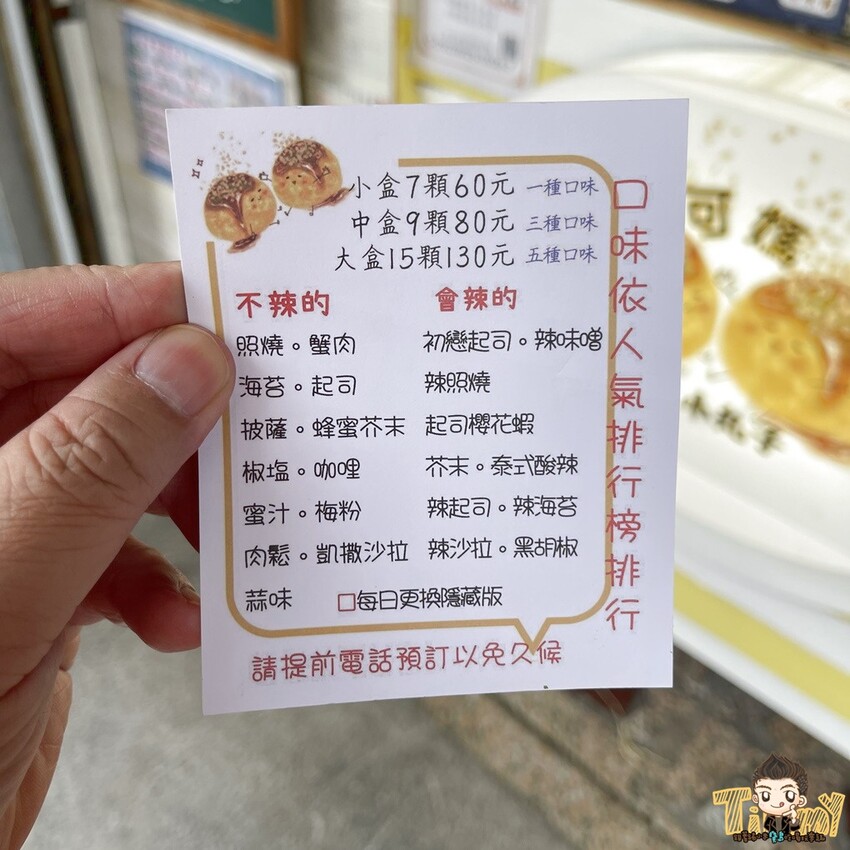 小盒7顆60元 一種口味
中盒9顆80元 三種口味
大盒15顆130元 五種口味
口味依人氣排行榜排行
不辣的 會辣的
照燒。蟹肉 初戀起司。辣味噌
海苔。起司 辣照燒
披薩。蜂蜜芥末 起司櫻花蝦
椒塩。咖哩 芥末。泰式酸辣
蜜汁。梅粉 辣起司。辣海苔
肉鬆。凱撒沙拉 辣沙拉。黑胡椒
蒜味 口每日更換隱藏版
請提前電話預訂以免久候
小丸子
Timmy